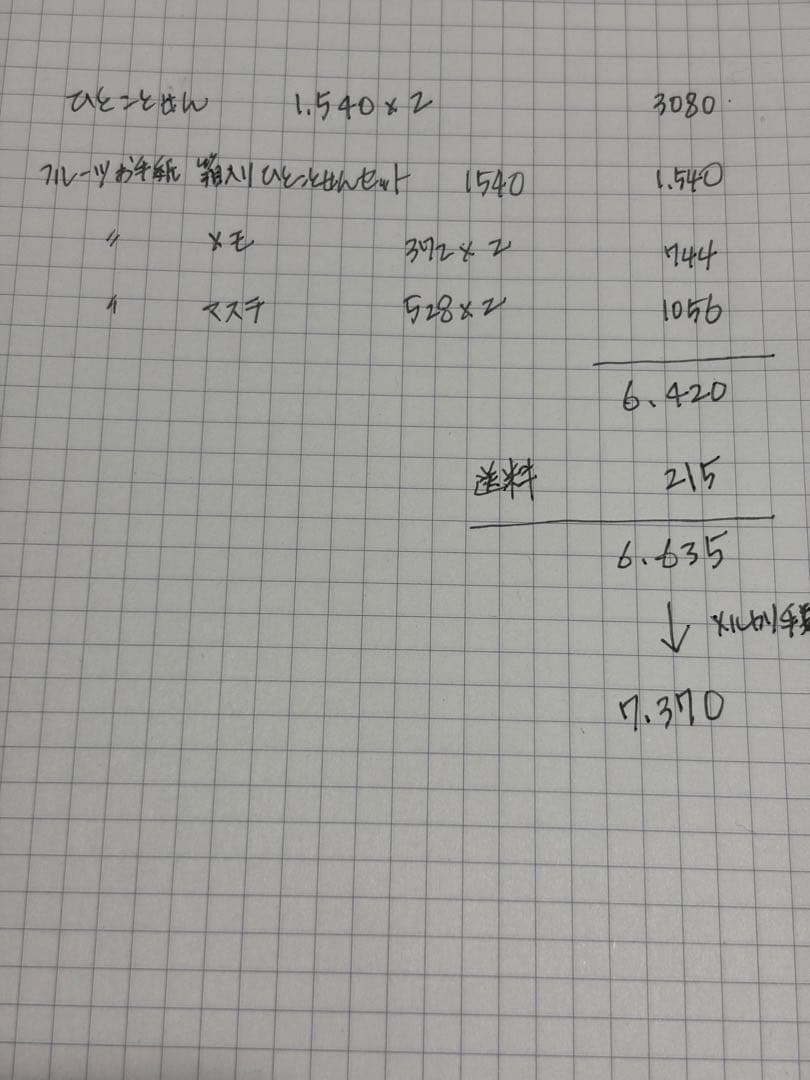 ひとことせん 1.540×2 3080
フルーツお手紙 箱入りひとことせんセット 1540 1.540
〃 メモ 372×2 744
〃 マステ 528×2 1056
6.420
送料 215
6.635
↓ メルカリ手
7.370